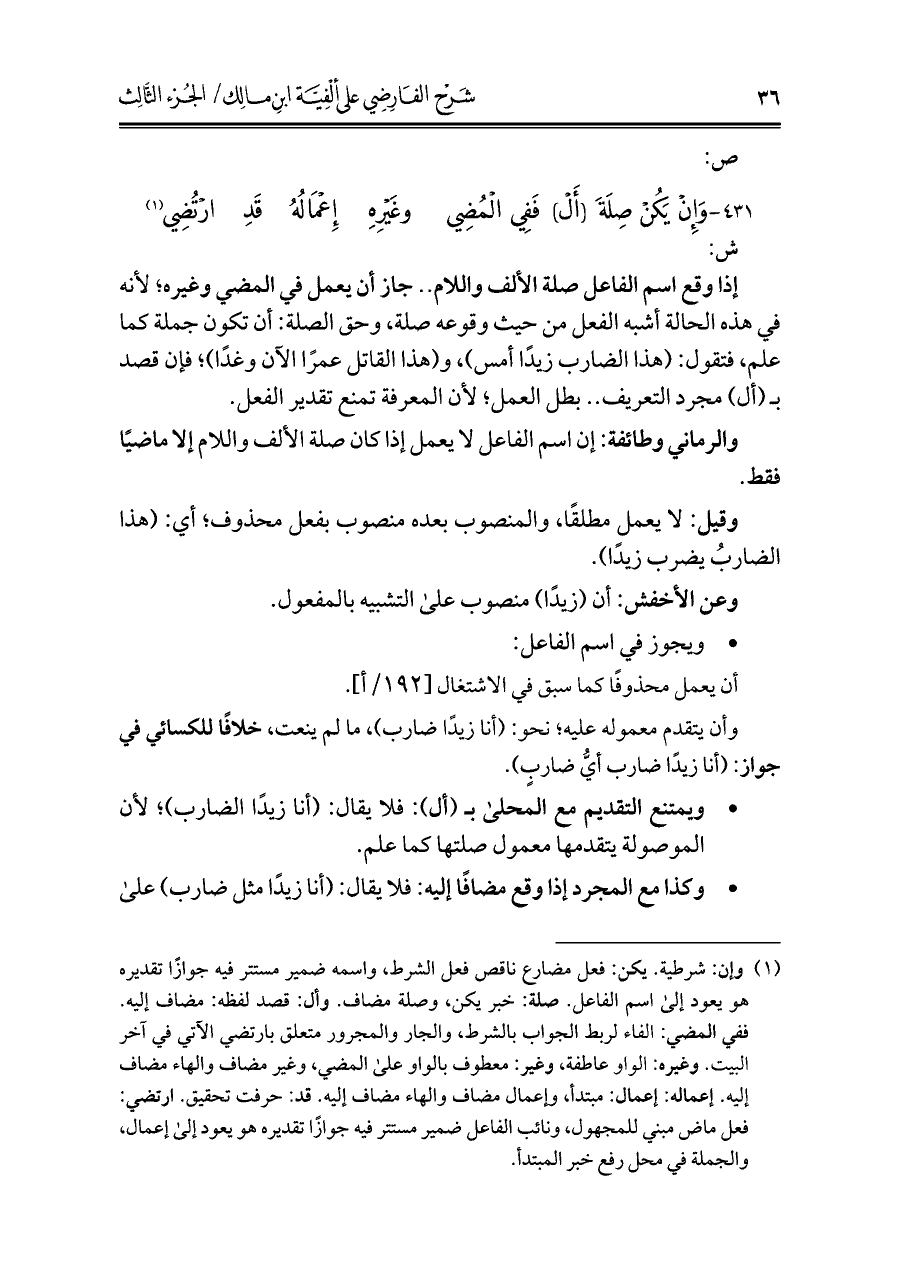 ٣٦ شَرْح الفَارِضِي عَلى أَلْفِيَّة ابنِ مَالِك/ الجُزء الثَّالِث
ص:
٤٣١-وَإِنْ يَكُنْ صِلَةَ (أَلْ) فَفِي الْمُضِي وغَيْرِهِ إِعْمَالُهُ قَدِ ارْتُضِي(١)
ش:
إذا وقع اسم الفاعل صلة الألف واللام.. جاز أن يعمل في المضي وغيره؛ لأنه
في هذه الحالة أشبه الفعل من حيث وقوعه صلة، وحق الصلة: أن تكون جملة كما
علم، فتقول: (هذا الضارب زيدًا أمس)، و(هذا القاتل عمرًا الآن وغدًا)؛ فإن قصد
بـ (أل) مجرد التعريف.. بطل العمل؛ لأن المعرفة تمنع تقدير الفعل.
والرماني وطائفة: إن اسم الفاعل لا يعمل إذا كان صلة الألف واللام إلا ماضيًا
فقط.
وقيل: لا يعمل مطلقًا، والمنصوب بعده منصوب بفعل محذوف؛ أي: (هذا
الضاربُ يضرب زيدًا).
وعن الأخفش: أن (زيدًا) منصوب علىٰ التشبيه بالمفعول.
• ويجوز في اسم الفاعل:
أن يعمل محذوفًا كما سبق في الاشتغال [١٩٢/ أ].
وأن يتقدم معموله عليه؛ نحو: (أنا زيدًا ضارب)، ما لم ينعت، خلافًا للكسائي في
جواز: (أنا زيدًا ضارب أيُّ ضاربٍ).
• ويمتنع التقديم مع المحلىٰ بـ (أل): فلا يقال: (أنا زيدًا الضارب)؛ لأن
الموصولة يتقدمها معمول صلتها كما علم.
• وكذا مع المجرد إذا وقع مضافًا إليه: فلا يقال: (أنا زيدًا مثل ضارب) علىٰ
(١) وإن: شرطية. يكن: فعل مضارع ناقص فعل الشرط، واسمه ضمير مستتر فيه جوازًا تقديره
هو يعود إلىٰ اسم الفاعل. صلة: خبر يكن، وصلة مضاف. وأل: قصد لفظه: مضاف إليه.
ففي المضي: الفاء لربط الجواب بالشرط، والجار والمجرور متعلق بارتضي الآتي في آخر
البيت. وغيره: الواو عاطفة، وغير: معطوف بالواو علىٰ المضي، وغير مضاف والهاء مضاف
إليه. إعماله: إعمال: مبتدأ، وإعمال مضاف والهاء مضاف إليه. قد: حرفت تحقيق. ارتضي:
فعل ماض مبني للمجهول، ونائب الفاعل ضمير مستتر فيه جوازًا تقديره هو يعود إلىٰ إعمال،
والجملة في محل رفع خبر المبتدأ.